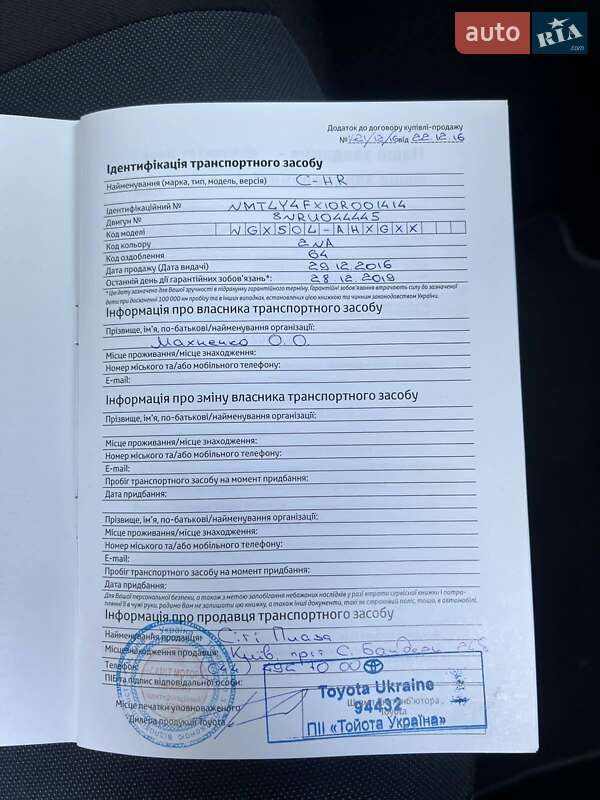 auto RIA .com
Додаток до договору купівлі-продажу
№ від 22.12.16
Ідентифікація транспортного засобу
Найменування (марка, тип, модель, версія) C-HR
Ідентифікаційний № NMTLY4FX10R001414
Двигун № 8NRU044445
Код моделі NGX50L-AHXGXX
Код кольору 2NA
Код оздоблення 64
Дата продажу (Дата видачі) 29.12.2016
Останній день дії гарантійних зобов'язань*: 28.12.2019
*Ця дата зазначена для Вашої зручності в підрахунку гарантійного терміну. Гарантійні зобов'язання втрачають силу до зазначеної
дати при досягненні 100 000 км пробігу та в інших випадках, встановлених цією книжкою та чинним законодавством України.
Інформація про власника транспортного засобу
Прізвище, ім'я, по-батькові/найменування організації:
Махненко О.О.
Місце проживання/місце знаходження:
Номер міського та/або мобільного телефону:
E-mail:
Інформація про зміну власника транспортного засобу
Прізвище, ім'я, по-батькові/найменування організації:
Місце проживання/місце знаходження:
Номер міського та/або мобільного телефону:
E-mail:
Пробіг транспортного засобу на момент придбання:
Дата придбання:
Прізвище, ім'я, по-батькові/найменування організації:
Місце проживання/місце знаходження:
Номер міського та/або мобільного телефону:
E-mail:
Пробіг транспортного засобу на момент придбання:
Дата придбання:
Для Вашої персональної безпеки, а також з метою запобігання небажаних наслідків у разі втрати сервісної книжки і потра-
пляння її в чужі руки, радимо Вам не залишати цю книжку, а також інші документи, такі як страховий поліс, тощо, в автомобілі.
Інформація про продавця транспортного засобу
Найменування продавця: Сіті Плаза
Місцезнаходження продавця: Київ, пр-т С. Бандери
Телефон: 044 494 10 00
ПІБ та підпис відповідальної особи:
Місце печатки уповноваженого
Дилера продукції Toyota
Україна
Toyota Ukraine
94432
ПІІ «Тойота Україна»
Toyota